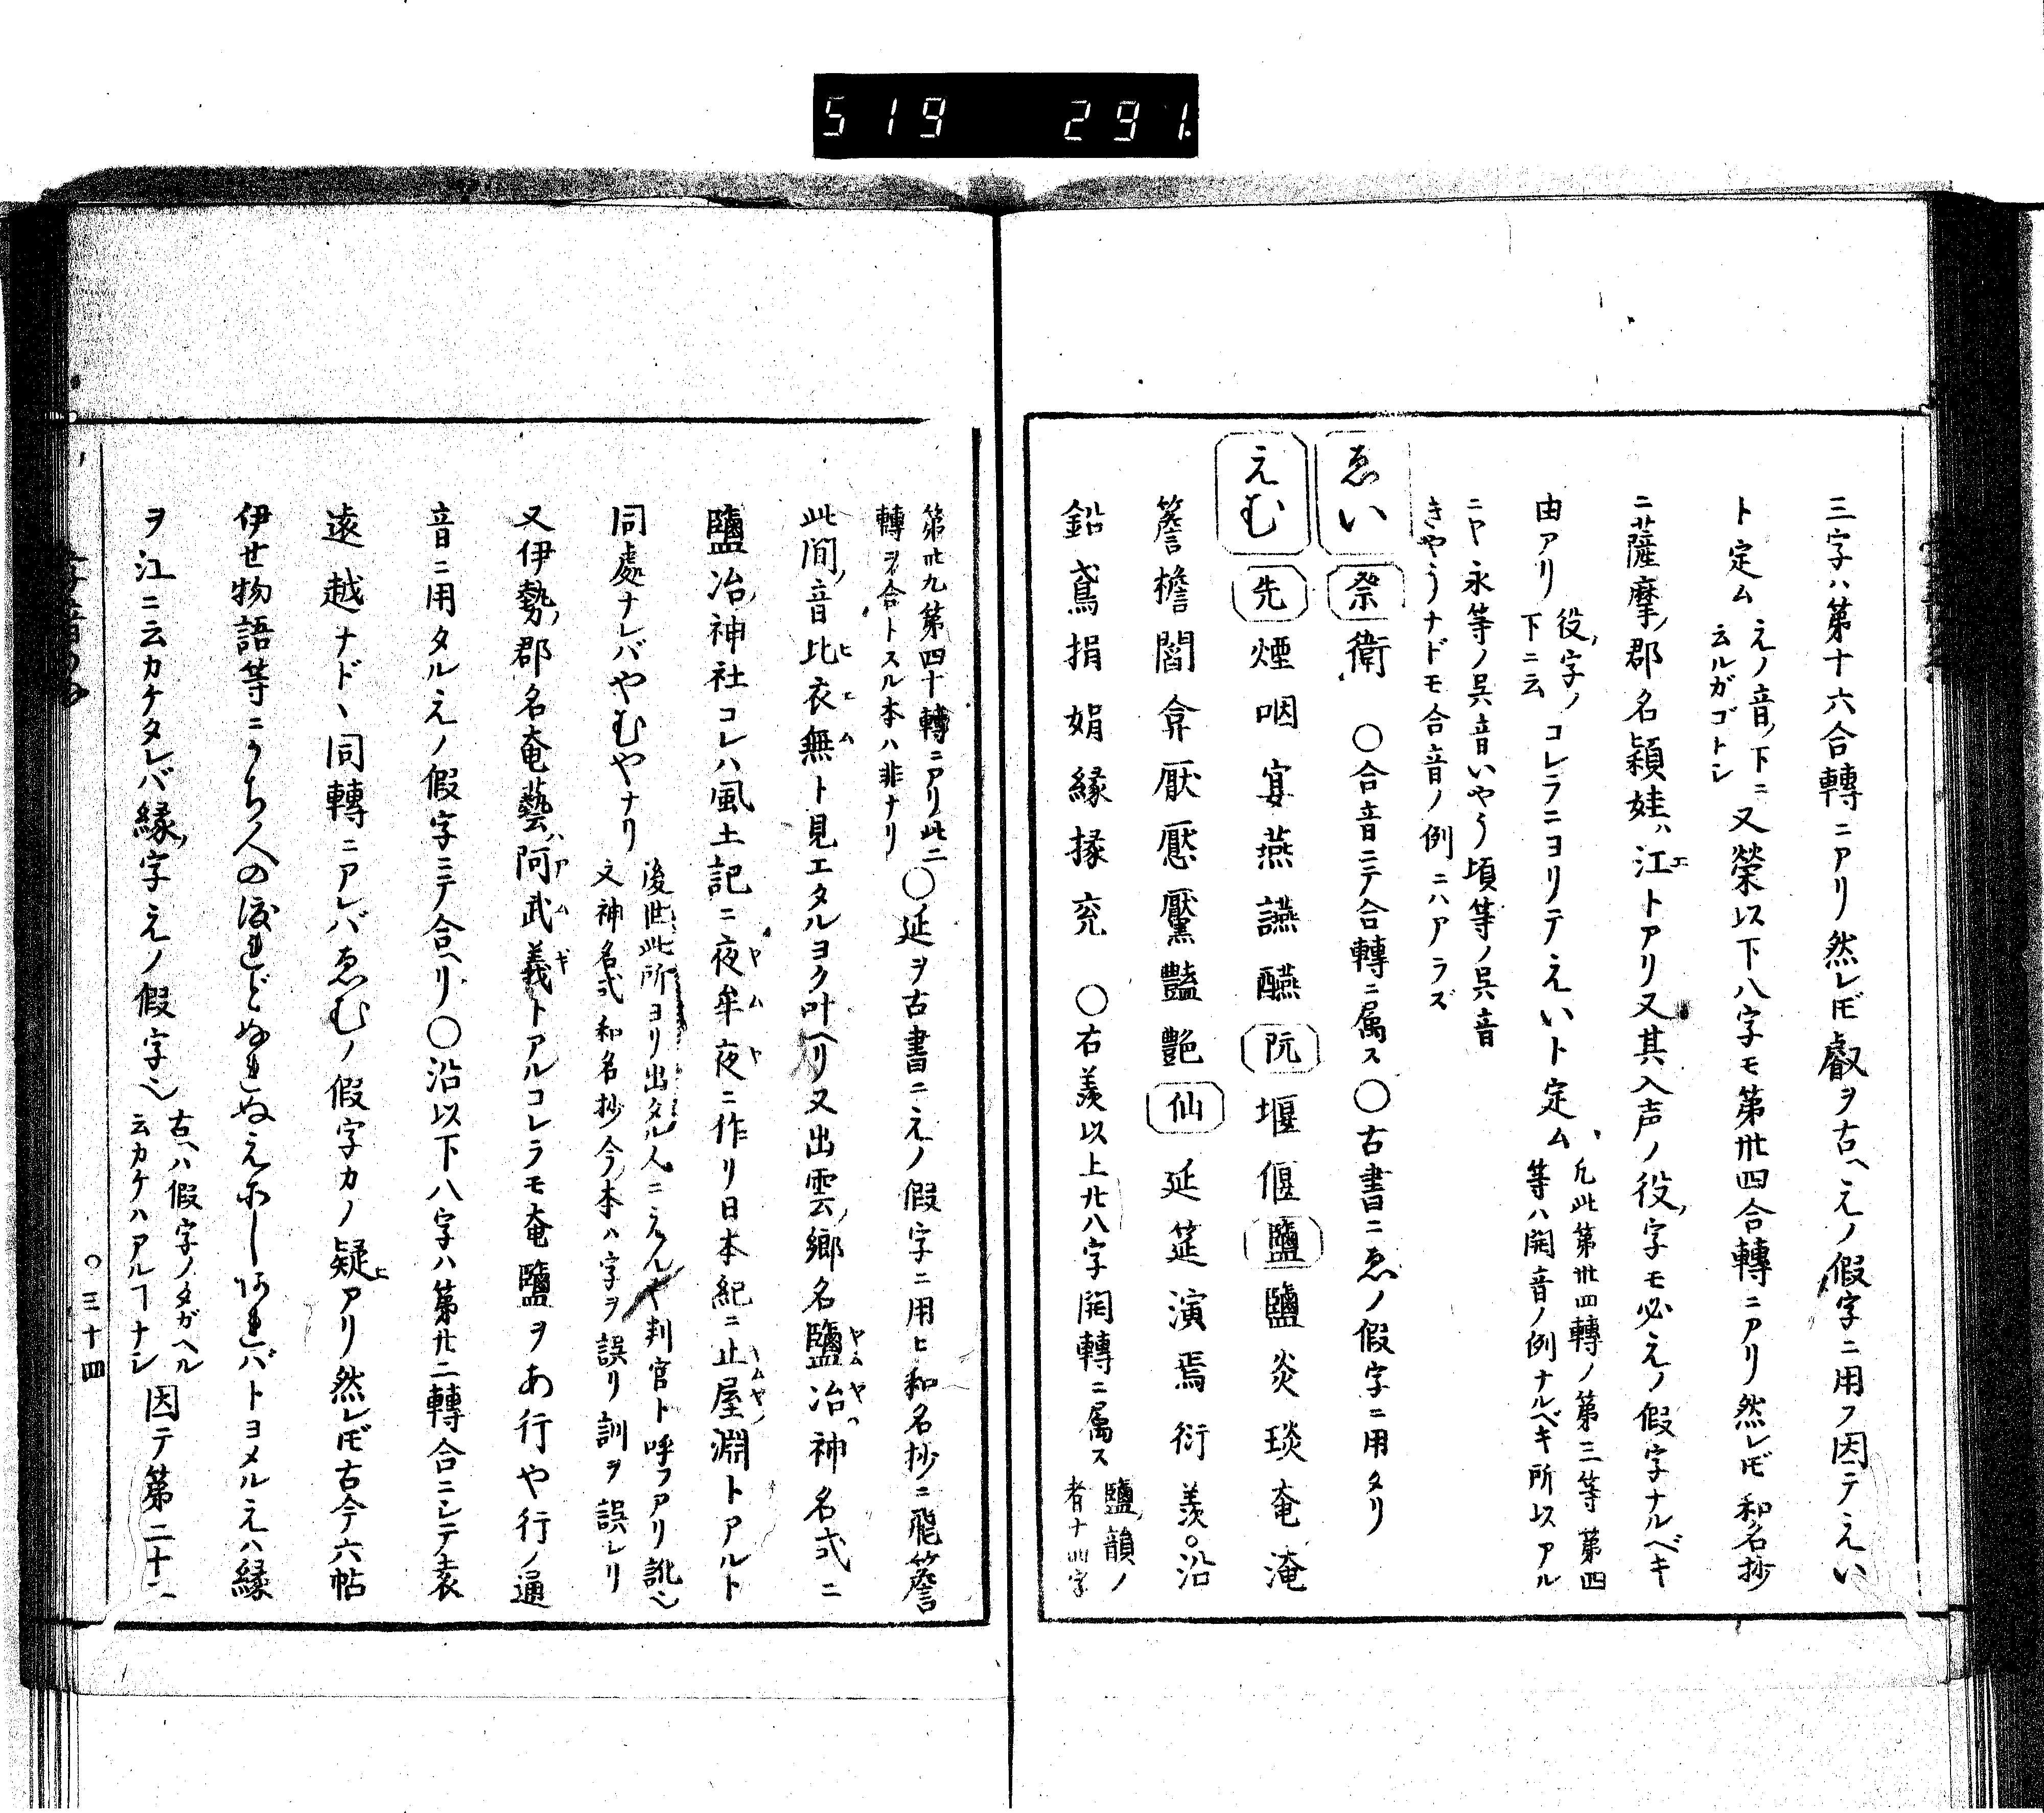 519 291.
三字ハ第十六合轉ニアリ然レ𪜈叡ヲ古ヘえノ假字ニ用フ因テえい
ト定ム えノ音下ニ云ルガゴトシ 又榮以下八字モ第卅四合轉ニアリ然レ𪜈和名抄
ニ薩摩ノ郡名頴娃ハ江エトアリ又其入声ノ役ノ字モ必えノ假字ナルベキ
由アリ 役ノ字ノ下ニ云 コレラニヨリテえいト定ム 凡此第卅四轉ノ第三等第四等ハ開音ノ例ナルベキ所以アル
ニヤ永等ノ呉音いやう頃等ノ呉音
きやうナドモ合音ノ例ニハアラズ
ゑい 祭 衛 ○合音ニテ合轉ニ属ス○古書ニゑノ假字ニ用タリ
えむ 先 煙咽宴燕讌醼 阮 堰偃 鹽 鹽炎琰奄淹
簷檐閻弇厭懕黶豔艶 仙 延筵演焉衍羨○沿
鉛鳶捐娟縁掾兖 ○右羨以上廿八字開轉ニ属ス 鹽ノ韻ノ者十四字
第卅九第四十轉ニアリ此二轉ヲ合トスル本ハ非ナリ ○延ヲ古書ニえノ假字ニ用ヒ和名抄ニ飛簷
此間ノ音比ヒ衣エ無ムト見エタルヨク叶ヘリ又出雲ノ郷名鹽ヤム冶ヤ神名式ニ
鹽冶神社コレハ風土記ニ夜ヤ牟ム夜ヤニ作リ日本紀ニ止屋ヤムヤノ淵トアルト
同處ナレバやむやナリ 後世此所ヨリ出タル人ニえんや判官ト呼フアリ訛也又神名式和名抄今ノ本ハ字ヲ誤リ訓ヲ誤レリ
又伊勢ノ郡名奄藝ハ阿ア武ム義ギトアルコレラモ奄鹽ヲあ行や行ノ通
音ニ用タルえノ假字ニテ合ヘリ○沿以下八字ハ第廿二轉合ニシテ袁
遠越ナドヽ同轉ニアレバゑむノ假字カノ疑ヒアリ然レ𪜈古今六帖
伊世物語等ニかち人の渡れどぬれぬえにしあればトヨメルえハ縁
ヲ江ニ云カケタレバ縁ノ字えノ假字也 古ヘハ假字ノタガヘル云カケハアルヿナシ 因テ第二十二
○三十四